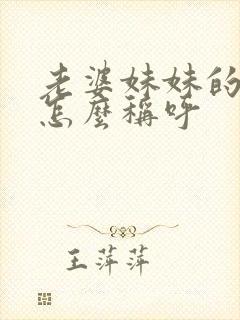 老婆妹妹的
怎麼稱呼
王萍萍